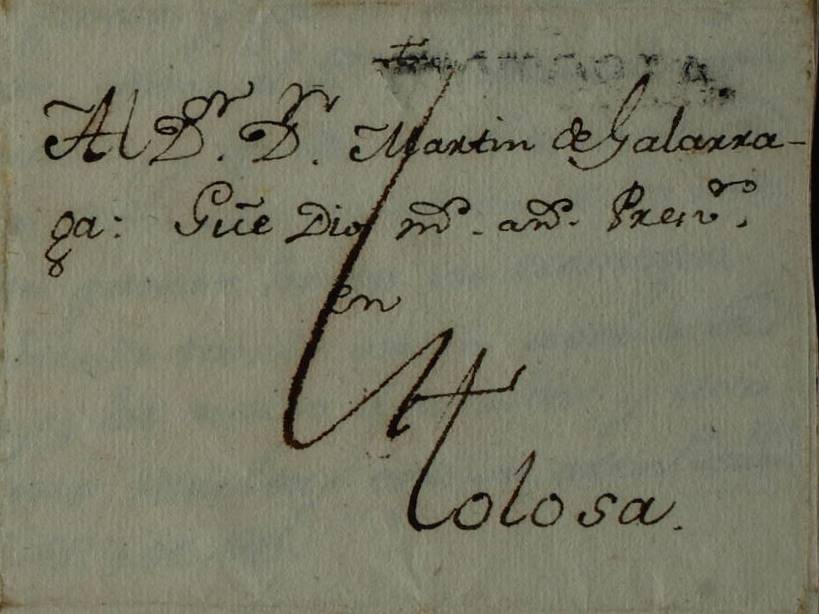 Al Dr. Dn. Martin de Galarra-
ga: Gũe Dios ms. as. Presvro.
en
Tolosa.